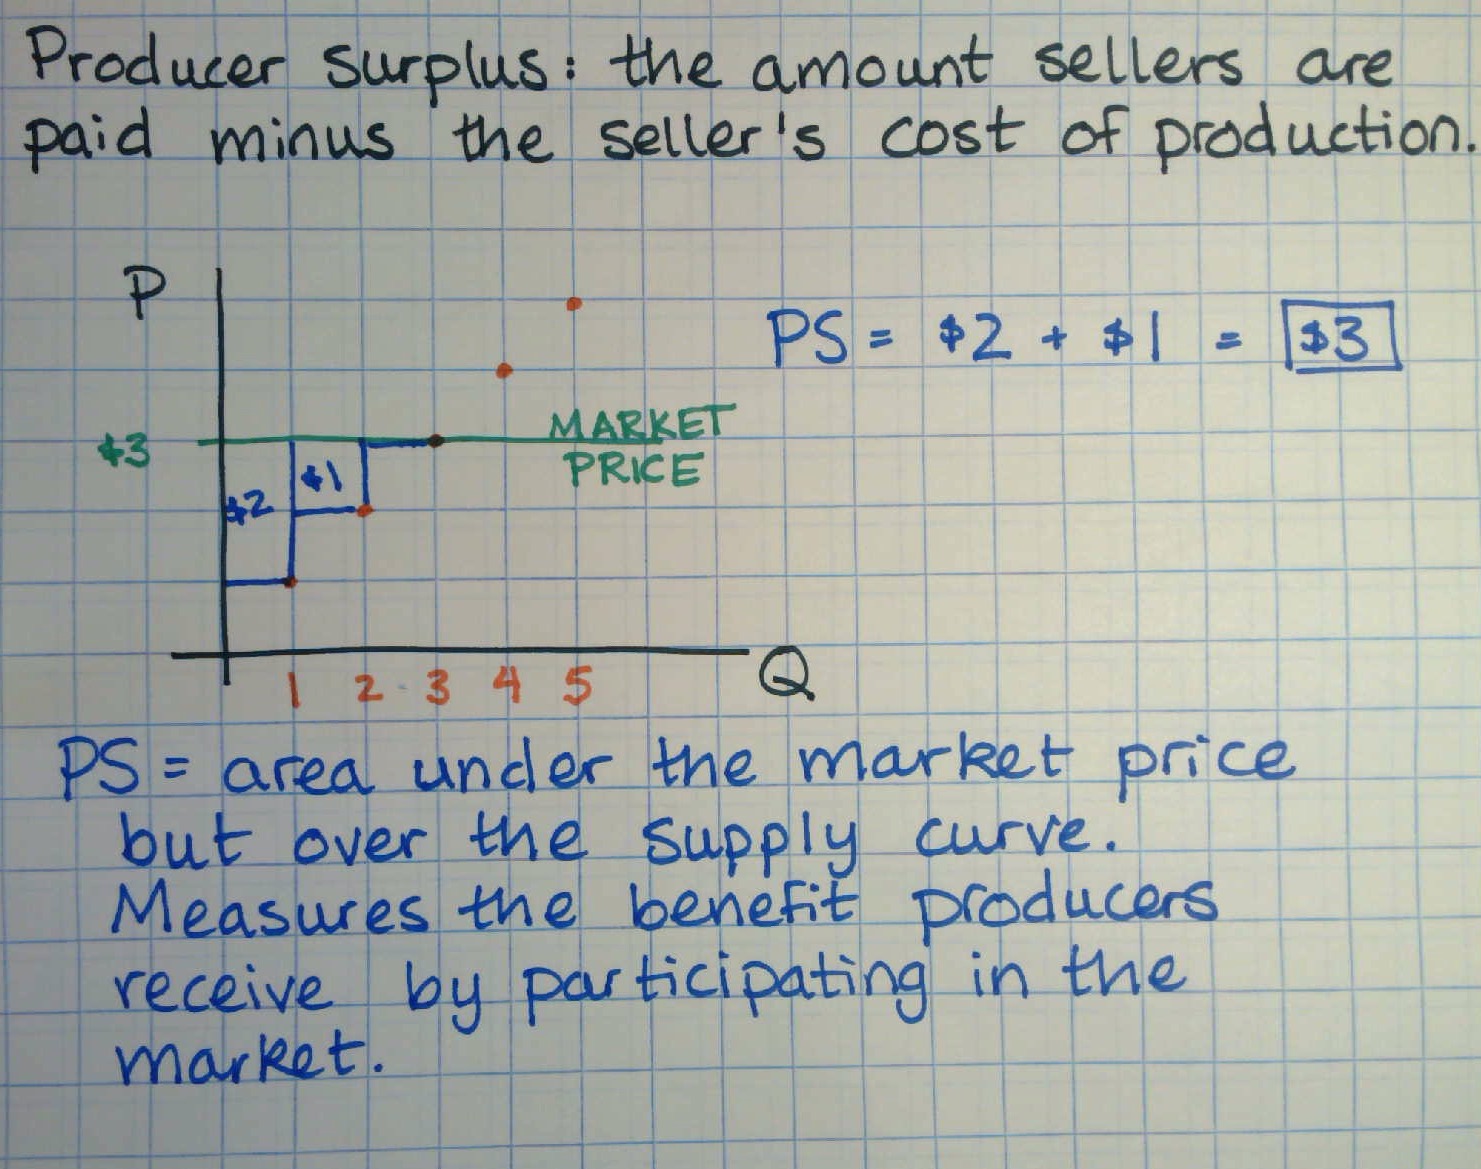 Producer surplus: the amount sellers are
paid minus the seller's cost of production.
P
PS = $2 + $1 = $3
MARKET
$3
PRICE
$1
$2
1 2 3 4 5
Q
PS = area under the market price
but over the supply curve.
Measures the benefit producers
receive by participating in the
market.